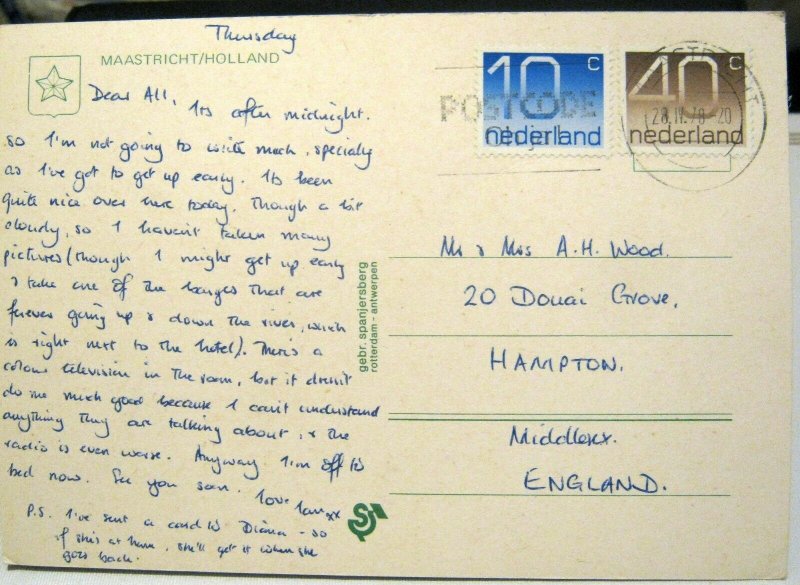 Thursday
MAASTRICHT/HOLLAND
Dear All, Its after midnight.
so I'm not going to write much, specially
as I've got to get up early. Its been
quite nice over here today, though a bit
cloudy, so I haven't taken many
pictures (though I might get up early
& take one of the barges that are
forever going up & down the river, which
is right next to the hotel). There's a
colour television in the room, but it doesn't
do me much good because I can't understand
anything they are talking about, & the
radio is even worse. Anyway I'm off to
bed now. See you soon. love Ian xx
P.S. I've sent a card to Diana - so
if she's at home, she'll get it when she
goes back.
gebr. spanjersberg
rotterdam - antwerpen
10 c
nederland
40 c
nederland
POSTCODE
28.IV.78 - 20
Mr & Mrs A.H. Wood.
20 Douai Grove,
HAMPTON.
Middlesex.
ENGLAND.